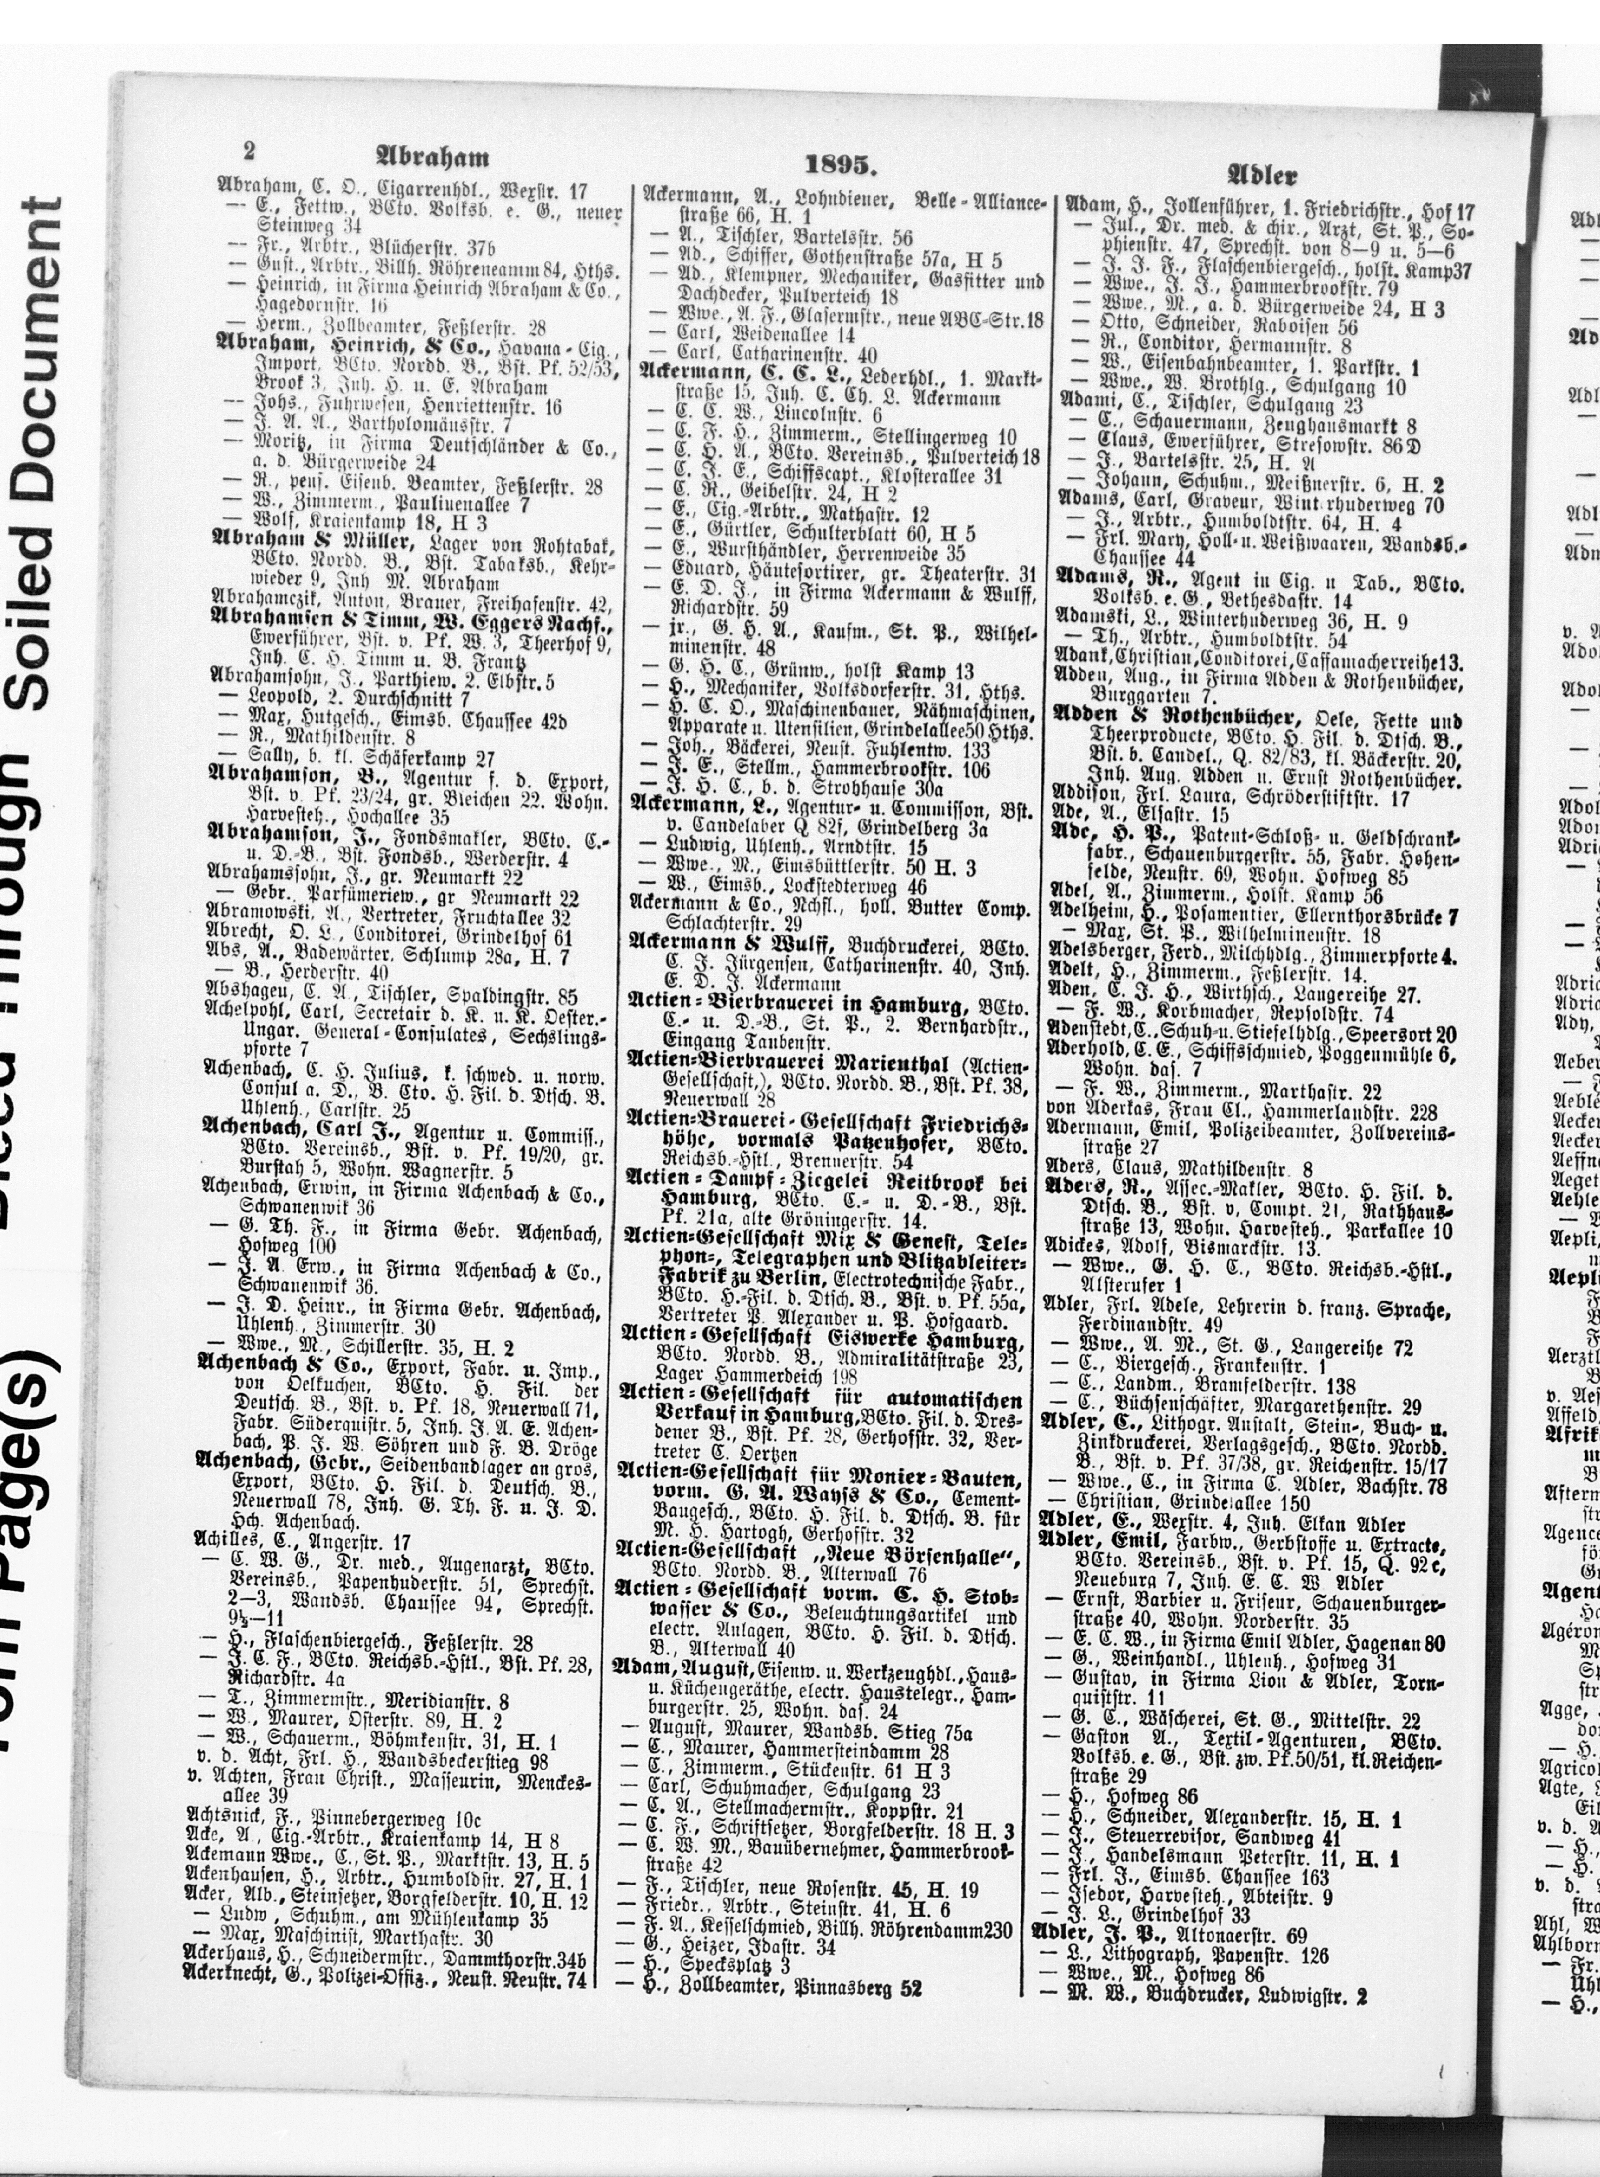 2
Abraham
1895.
Adler
Abraham, C. O., Cigarrenhdl., Wexstr. 17
— E., Fettw., BCto. Volksb. e. G., neuer
Steinweg 34
— Fr., Arbtr., Blücherstr. 37b
— Gust., Arbtr., Billh. Röhreneamm 84, Hths.
— Heinrich, in Firma Heinrich Abraham & Co.,
Hagedornstr. 16
— Herm., Zollbeamter, Feßlerstr. 28
Abraham, Heinrich, & Co., Havana-Cig.,
Import, BCto. Nordd. B., Bst. Pf. 52/53,
Brook 3, Inh. H. u. E. Abraham
— Johs., Fuhrwesen, Henriettenstr. 16
— J. A. A., Bartholomäusstr. 7
— Moritz, in Firma Deutschländer & Co.,
a. d. Bürgerweide 24
— R., pens. Eisenb. Beamter, Feßlerstr. 28
— W., Zimmerm., Paulinenallee 7
— Wolf, Kraienkamp 18, H 3
Abraham & Müller, Lager von Rohtabak,
BCto. Nordd. B., Bst. Tabaksb., Kehr-
wieder 9, Inh M. Abraham
Abrahamczik, Anton, Brauer, Freihafenstr. 42,
Abrahamsen & Timm, W. Eggers Nachf.,
Ewerführer, Bst. v. Pf. W. 3, Theerhof 9,
Inh. C. H. Timm u. B. Frantz
Abrahamsohn, J., Parthiew. 2. Elbstr. 5
— Leopold, 2. Durchschnitt 7
— Max, Hutgesch., Eimsb. Chaussee 42d
— R., Mathildenstr. 8
— Sally, b. kl. Schäferkamp 27
Abrahamson, B., Agentur f. d. Export,
Bst. v. Pf. 23/24, gr. Bleichen 22. Wohn.
Harvesteh., Hochallee 35
Abrahamson, J., Fondsmakler, BCto. C.-
u. D.-B., Bst. Fondsb., Werderstr. 4
Abrahamssohn, J., gr. Neumarkt 22
— Gebr., Parfümeriew., gr Neumarkt 22
Abramowski, A., Vertreter, Fruchtallee 32
Abrecht, O. L., Conditorei, Grindelhof 61
Abs, A., Badewärter, Schlump 28a, H. 7
— B., Herderstr. 40
Abshagen, C. A., Tischler, Spaldingstr. 85
Achelpohl, Carl, Secretair d. K. u. K. Oester.-
Ungar. General-Consulates, Sechslings-
pforte 7
Achenbach, C. H. Julius, k. schwed. u. norw.
Consul a. D., B. Cto. H. Fil. d. Dtsch. B.
Uhlenh., Carlstr. 25
Achenbach, Carl J., Agentur u. Commiss.,
BCto. Vereinsb., Bst. v. Pf. 19/20, gr.
Burstah 5, Wohn. Wagnerstr. 5
Achenbach, Erwin, in Firma Achenbach & Co.,
Schwanenwik 36
— G. Th. F., in Firma Gebr. Achenbach,
Hofweg 100
— J. A. Erw., in Firma Achenbach & Co.,
Schwanenwik 36.
— J. D. Heinr., in Firma Gebr. Achenbach,
Uhlenh., Zimmerstr. 30
— Wwe., M., Schillerstr. 35, H. 2
Achenbach & Co., Export, Fabr. u. Imp.,
von Oelkuchen, BCto. H. Fil. der
Deutsch. B., Bst. v. Pf. 18, Neuerwall 71,
Fabr. Süderquistr. 5, Inh. J. A. E. Achen-
bach, P. J. W. Söhren und F. B. Dröge
Achenbach, Gebr., Seidenbandlager an gros,
Export, BCto. H. Fil. d. Deutsch. B.,
Neuerwall 78, Inh. G. Th. F. u. J. D.
Hch. Achenbach.
Achilles, C., Angerstr. 17
— C. W. G., Dr. med., Augenarzt, BCto.
Vereinsb., Papenhuderstr. 51, Sprechst.
2—3, Wandsb. Chaussee 94, Sprechst.
9½—11
— H., Flaschenbiergesch., Feßlerstr. 28
— J. C. F., BCto. Reichsb.-Hstl., Bst. Pf. 28,
Richardstr. 4a
— T., Zimmermstr., Meridianstr. 8
— W., Maurer, Osterstr. 89, H. 2
— W., Schauerm., Böhmkenstr. 31, H. 1
v. d. Acht, Frl. H., Wandsbeckerstieg 98
v. Achten, Frau Christ., Masseurin, Menckes-
allee 39
Achtsnick, F., Pinnebergerweg 10c
Acke, A., Cig.-Arbtr., Kraienkamp 14, H 8
Ackemann Wwe., C., St. P., Marktstr. 13, H. 5
Ackenhausen, H., Arbtr., Humboldstr. 27, H. 1
Acker, Alb., Steinsetzer, Borgfelderstr. 10, H. 12
— Ludw., Schuhm., am Mühlenkamp 35
— Max, Maschinist, Marthastr. 30
Ackerhaus, H., Schneidermstr., Dammthorstr. 34b
Ackerknecht, G., Polizei-Offiz., Neust. Neustr. 74
Ackermann, A., Lohndiener, Belle-Alliance-
straße 66, H. 1
— A., Tischler, Bartelsstr. 56
— Ad., Schiffer, Gothenstraße 57a, H 5
— Ad., Klempner, Mechaniker, Gasfitter und
Dachdecker, Pulverteich 18
— Wwe., A. F., Glasermstr., neue ABC-Str. 18
— Carl, Weidenallee 14
— Carl, Catharinenstr. 40
Ackermann, C. C. L., Lederhdl., 1. Markt-
straße 15, Inh. C. Ch. L. Ackermann
— C. C. W., Lincolnstr. 6
— C. F. H., Zimmerm., Stellingerweg 10
— C. H. A., BCto. Vereinsb., Pulverteich 18
— C. J. E., Schiffscapt., Klosterallee 31
— C. R., Geibelstr. 24, H 2
— E., Cig.-Arbtr., Mathastr. 12
— E., Gürtler, Schulterblatt 60, H 5
— E., Wursthändler, Herrenweide 35
— Eduard, Häutesortirer, gr. Theaterstr. 31
— E. D. J., in Firma Ackermann & Wulff,
Richardstr. 59
— jr., G. H. A., Kaufm., St. P., Wilhel-
minenstr. 48
— G. H. C., Grünw., holst Kamp 13
— H., Mechaniker, Volksdorferstr. 31, Hths.
— H. C. O., Maschinenbauer, Nähmaschinen,
Apparate u. Utensilien, Grindelallee 50 Hths.
— Joh., Bäckerei, Neust. Fuhlentw. 133
— J. E., Stellm., Hammerbrookstr. 106
— J. H. C., b. d. Strohhause 30a
Ackermann, L., Agentur- u. Commisson, Bst.
v. Candelaber Q 82f, Grindelberg 3a
— Ludwig, Uhlenh., Arndtstr. 15
— Wwe., M., Eimsbüttlerstr. 50 H. 3
— W., Eimsb., Lockstedterweg 46
Ackermann & Co., Nchfl., holl. Butter Comp.
Schlachterstr. 29
Ackermann & Wulff, Buchdruckerei, BCto.
C. J. Jürgensen, Catharinenstr. 40, Inh.
E. D. J. Ackermann
Actien-Bierbrauerei in Hamburg, BCto.
C.- u. D.-B., St. P., 2. Bernhardstr.,
Eingang Taubenstr.
Actien-Bierbrauerei Marienthal (Actien-
Gesellschaft,), BCto. Nordd. B., Bst. Pf. 38,
Neuerwall 28
Actien-Brauerei-Gesellschaft Friedrichs-
höhe, vormals Patzenhofer, BCto.
Reichsb.-Hstl., Brennerstr. 54
Actien-Dampf-Ziegelei Reitbrook bei
Hamburg, BCto. C.- u. D.-B., Bst.
Pf. 21a, alte Gröningerstr. 14.
Actien-Gesellschaft Mix & Genest, Tele-
phon-, Telegraphen und Blitzableiter-
Fabrik zu Berlin, Electrotechnische Fabr.,
BCto. H.-Fil. d. Dtsch. B., Bst. v. Pf. 55a,
Vertreter P. Alexander u. P. Hofgaard.
Actien-Gesellschaft Eiswerke Hamburg,
BCto. Nordd. B., Admiralitätstraße 23,
Lager Hammerdeich 198
Actien-Gesellschaft für automatischen
Verkauf in Hamburg, BCto. Fil. d. Dres-
dener B., Bst. Pf. 28, Gerhofstr. 32, Ver-
treter C. Oertzen
Actien-Gesellschaft für Monier-Bauten,
vorm. G. A. Wayss & Co., Cement-
Baugesch., BCto. H. Fil. d. Dtsch. B. für
M. H. Hartogh, Gerhofstr. 32
Actien-Gesellschaft „Neue Börsenhalle“,
BCto. Nordd. B., Alterwall 76
Actien-Gesellschaft vorm. C. H. Stob-
wasser & Co., Beleuchtungsartikel und
electr. Anlagen, BCto. H. Fil. d. Dtsch.
B., Alterwall 40
Adam, August, Eisenw. u. Werkzeughdl., Haus-
u. Küchengeräthe, electr. Haustelegr., Ham-
burgerstr. 25, Wohn. das. 24
— August, Maurer, Wandsb. Stieg 75a
— C., Maurer, Hammersteindamm 28
— C., Zimmerm., Stückenstr. 61 H 3
— Carl, Schuhmacher, Schulgang 23
— C. A., Stellmachermstr., Koppstr. 21
— C. F., Schriftsetzer, Borgfelderstr. 18 H. 3
— C. W. M., Bauübernehmer, Hammerbrook-
straße 42
— F., Tischler, neue Rosenstr. 45, H. 19
— Friedr., Arbtr., Steinstr. 41, H. 6
— F. A., Kesselschmied, Billh. Röhrendamm 230
— G., Heizer, Idastr. 34
— H., Specksplatz 3
— H., Zollbeamter, Pinnasberg 52
Adam, H., Jollenführer, 1. Friedrichstr., Hof 17
— Jul., Dr. med. & chir., Arzt, St. P., So-
phienstr. 47, Sprechst. von 8—9 u. 5—6
— J. J. F., Flaschenbiergesch., holst. Kamp 37
— Wwe., J. J., Hammerbrookstr. 79
— Wwe., M., a. d. Bürgerweide 24, H 3
— Otto, Schneider, Raboisen 56
— R., Conditor, Hermannstr. 8
— W., Eisenbahnbeamter, 1. Parkstr. 1
— Wwe., W. Brothlg., Schulgang 10
Adami, C., Tischler, Schulgang 23
— C., Schauermann, Zeughausmarkt 8
— Claus, Ewerführer, Stresowstr. 86D
— J., Bartelsstr. 25, H. A
— Johann, Schuhm., Meißnerstr. 6, H. 2
Adams, Carl, Graveur, Wint rhuderweg 70
— J., Arbtr., Humboldtstr. 64, H. 4
— Frl. Mary, Holl- u. Weißwaaren, Wandsb.-
Chaussee 44
Adams, R., Agent in Cig. u Tab., BCto.
Volksb. e. G., Bethesdastr. 14
Adamski, L., Winterhuderweg 36, H. 9
— Th., Arbtr., Humboldtstr. 54
Adank, Christian, Conditorei, Caffamacherreihe 13.
Adden, Aug., in Firma Adden & Rothenbücher,
Burggarten 7.
Adden & Rothenbücher, Oele, Fette und
Theerproducte, BCto. H. Fil. d. Dtsch. B.,
Bst. b. Candel., Q. 82/83, kl. Bäckerstr. 20,
Inh. Aug. Adden u. Ernst Rothenbücher.
Addison, Frl. Laura, Schröderstiftstr. 17
Ade, A., Elsastr. 15
Ade, H. P., Patent-Schloß- u. Geldschrank-
fabr., Schauenburgerstr. 55, Fabr. Hohen-
felde, Neustr. 69, Wohn. Hofweg 85
Adel, A., Zimmerm., Holst. Kamp 56
Adelheim, H., Posamentier, Ellernthorsbrücke 7
— Max, St. P., Wilhelminenstr. 18
Adelsberger, Ferd., Milchhdlg., Zimmerpforte 4.
Adelt, H., Zimmerm., Feßlerstr. 14.
Aden, C. J. H., Wirthsch., Langereihe 27.
— F. W., Korbmacher, Repsoldstr. 74
Adenstedt, C., Schuh- u. Stiefelhdlg., Speersort 20
Aderhold, C. E., Schiffsschmied, Poggenmühle 6,
Wohn. das. 7
— F. W., Zimmerm., Marthastr. 22
von Aderkas, Frau Cl., Hammerlandstr. 228
Adermann, Emil, Polizeibeamter, Zollvereins-
straße 27
Aders, Claus, Mathildenstr. 8
Aders, R., Assec.-Makler, BCto. H. Fil. d.
Dtsch. B., Bst. v. Compt. 21, Rathhaus-
straße 13, Wohn. Harvesteh., Parkallee 10
Adickes, Adolf, Bismarckstr. 13.
— Wwe., G. H. C., BCto. Reichsb.-Hstl.,
Alsterufer 1
Adler, Frl. Adele, Lehrerin d. franz. Sprache,
Ferdinandstr. 49
— Wwe., A. M., St. G., Langereihe 72
— C., Biergesch., Frankenstr. 1
— C., Landm., Bramfelderstr. 138
— C., Büchsenschäfter, Margarethenstr. 29
Adler, C., Lithogr. Anstalt, Stein-, Buch- u.
Zinkdruckerei, Verlagsgesch., BCto. Nordd.
B., Bst. v. Pf. 37/38, gr. Reichenstr. 15/17
— Wwe., C., in Firma C. Adler, Bachstr. 78
— Christian, Grindelallee 150
Adler, E., Wexstr. 4, Inh. Elkan Adler
Adler, Emil, Farbw., Gerbstoffe u. Extracte,
BCto. Vereinsb., Bst. v. Pf. 15, Q. 92c,
Neueburg 7, Inh. E. C. W Adler
— Ernst, Barbier u. Friseur, Schauenburger-
straße 40, Wohn. Norderstr. 35
— E. C. W., in Firma Emil Adler, Hagenau 80
— G., Weinhandl., Uhlenh., Hofweg 31
— Gustav, in Firma Lion & Adler, Torn-
quiststr. 11
— G. C., Wäscherei, St. G., Mittelstr. 22
— Gaston A., Textil-Agenturen, BCto.
Volksb. e. G., Bst. zw. Pf. 50/51, kl. Reichen-
straße 29
— H., Hofweg 86
— H., Schneider, Alexanderstr. 15, H. 1
— J., Steuerrevisor, Sandweg 41
— J., Handelsmann Peterstr. 11, H. 1
— Frl. J., Eimsb. Chaussee 163
— Isedor, Harvesteh., Abteistr. 9
— J. L., Grindelhof 33
Adler, J. P., Altonaerstr. 69
— L., Lithograph, Papenstr. 126
— Wwe., M., Hofweg 86
— M. W., Buchdrucker, Ludwigstr. 2
Soiled Document
Through
Page(s)